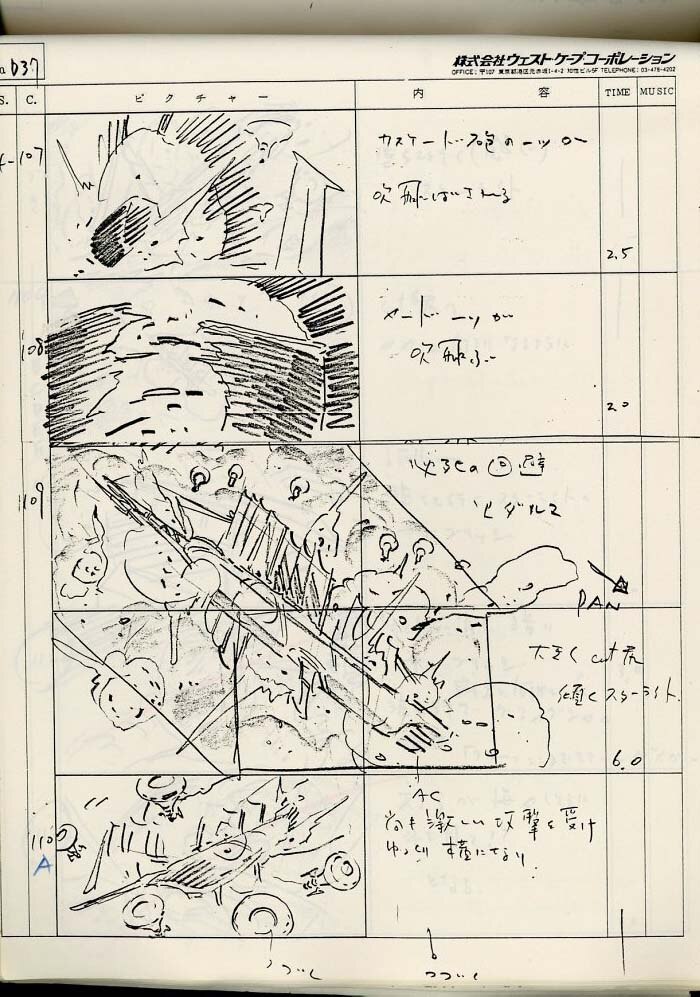 037
株式会社ウェスト・ケープ・コーポレーション
OFFICE: 〒107 東京都港区元赤坂1-4-2 TELEPHONE: 03-478-4202
S. C. ピクチャー 内容 TIME MUSIC
107
カスケード砲の一ツが
吹飛ばされる
2.5
108
一ツが
吹飛ぶ
2.0
109
回避
PAN
大きく
傾くスターライト.
6.0
110
A
AC
尚も激しい攻撃を受け
ゆっくり横になり
つづく
つづく